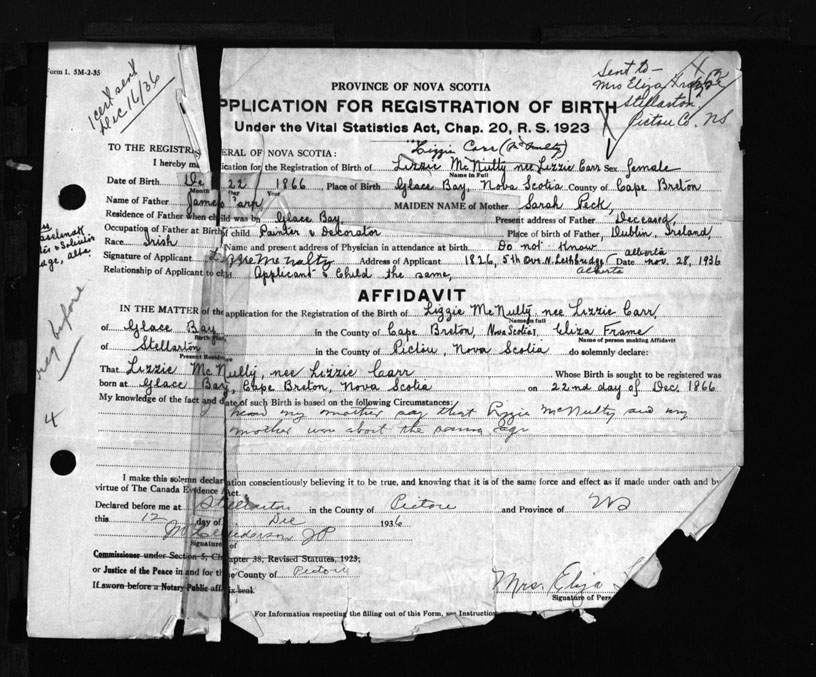 Form 1. 5M-2-35
1 cert sent
Dec 16/36
Sent to -
Mrs Eliza
Stellarton,
Pictou Co. NS
PROVINCE OF NOVA SCOTIA
PPLICATION FOR REGISTRATION OF BIRTH
Under the Vital Statistics Act, Chap. 20, R. S. 1923
Lizzie Carr (McNulty)
TO THE REGISTR ERAL OF NOVA SCOTIA:
I hereby ma ication for the Registration of Birth of Lizzie McNulty nee Lizzie Carr Sex female
Name in Full
Date of Birth De 22 1866, Place of Birth Glace Bay, Nova Scotia County of Cape Breton
Month Day Year
Name of Father James arr MAIDEN NAME of Mother Sarah Peck,
Residence of Father when child was born Glace Bay Present address of Father Deceased,
Occupation of Father at Birth of child Painter & Dekorator Place of birth of Father, Dublin, Ireland,
Race Irish Name and present address of Physician in attendance at birth Do not know
Signature of Applicant Lizzie McNulty Address of Applicant 1826, 5th Ave. N. Lethbridge, Alberta Date Nov. 28, 1936
Relationship of Applicant to child Applicant & Child the same,
AFFIDAVIT
IN THE MATTER of the application for the Registration of the Birth of Lizzie McNulty nee Lizzie Carr,
Name in full
of Glace Bay in the County of Cape Breton, Nova Scotia, Eliza Frame
Birth Place Name of person making Affidavit
of Stellarton in the County of Pictou, Nova Scotia do solemnly declare:
Present Residence
That Lizzie McNulty, nee Lizzie Carr Whose Birth is sought to be registered was
born at Glace Bay, Cape Breton, Nova Scotia on 22nd day of Dec. 1866
My knowledge of the fact and date of such Birth is based on the following Circumstances:
I heard my mother say that Lizzie McNulty and my
mother were about the same age
reg before
4
I make this solemn declaration conscientiously believing it to be true, and knowing that it is of the same force and effect as if made under oath and by
virtue of The Canada Evidence Act.
Declared before me at Stellarton in the County of Pictou and Province of NS
this 12 day of Dec 1936
Henderson JP
Signature of
Commissioner under Section 5, Chapter 38, Revised Statutes, 1923;
or Justice of the Peace in and for the County of Pictou
If sworn before a Notary Public affix seal.
Mrs. Eliza
Signature of Pers
For Information respecting the filling out of this Form, see Instruction